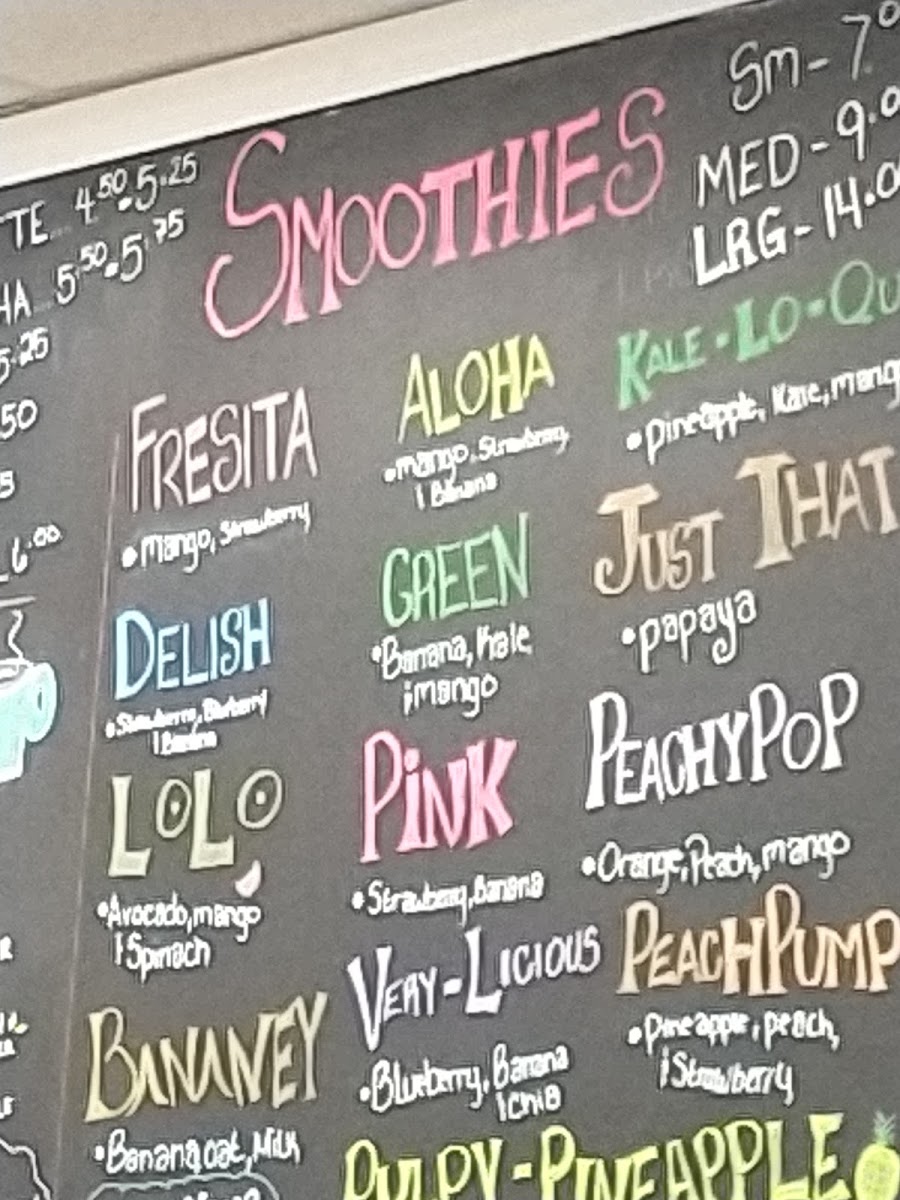 SMOOTHIES
Sm - 7.0
MED - 9.0
LRG - 14.0
TE 4.50 - 5.25
HA 5.50 - 5.75
5.25
50
5
6.00
FRESITA
• Mango, Strawberry
DELISH
• Strawberry, Blueberry
| Banana
LOLO
• Avocado, mango
| Spinach
BANANEY
• Banana, oat, Milk
ALOHA
• mango, Strawberry,
| Banana
GREEN
• Banana, Kale
; mango
PiNK
• Strawberry, Banana
VERY-LICIOUS
• Blueberry, Banana
| Chia
PULPY-PINEAPPLE
KALE-LO-QU
• pineapple, Kale, mang
JUST THAT
• papaya
PEACHYPOP
• Orange, Peach, mango
PEACHPUMP
• Pineapple, peach,
; Strawberry